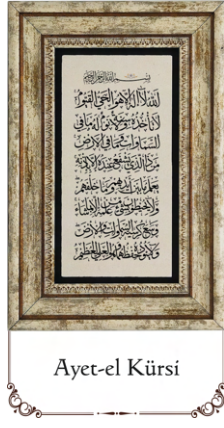 بسم الله الرحمن الرحيم
الله لا إله إلا هو الحي القيوم
لا تأخذه سنة ولا نوم له ما في
السماوات وما في الأرض
من ذا الذي يشفع عنده إلا بإذنه
يعلم ما بين أيديهم وما خلفهم
ولا يحيطون بشيء من علمه إلا بما شاء
وسع كرسيه السماوات والأرض
ولا يؤده حفظهما وهو العلي العظيم
Ayet-el Kürsi